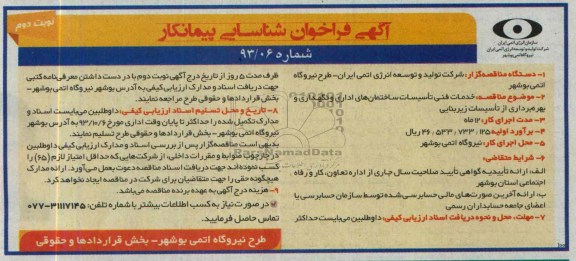 نوبت دوم
آگهی فراخوان شناسایی پیمانکار
شماره ۹۳/۰۶
سازمان انرژی اتمی ایران
شرکت تولید و توسعه انرژی اتمی ایران
نیروگاه اتمی بوشهر
۱- دستگاه مناقصه‌گزار: شرکت تولید و توسعه انرژی اتمی ایران- طرح نیروگاه
اتمی بوشهر
۲- موضوع مناقصه: خدمات فنی تأسیسات ساختمان‌های اداری و نگهداری و
بهره‌برداری از تأسیسات زیربنایی
۳- مدت اجرای کار: ۱۲ ماه
۴- برآورد اولیه: ۴۶,۵۳۳,۷۳۳,۱۲۵ ریال
۵- محل اجرای کار: نیروگاه اتمی بوشهر
۶- شرایط متقاضی:
الف: ارائه تأییدیه گواهی تأیید صلاحیت سال جاری از اداره تعاون، کار و رفاه
اجتماعی استان بوشهر
ب: ارائه آخرین صورت‌های مالی حسابرسی شده توسط سازمان حسابرسی یا
اعضای جامعه حسابداران رسمی
۷- مهلت، محل و نحوه دریافت اسناد ارزیابی کیفی: داوطلبین می‌بایست حداکثر
ظرف مدت ۵ روز از تاریخ درج آگهی نوبت دوم با در دست داشتن معرفی‌نامه کتبی
جهت دریافت اسناد و مدارک ارزیابی کیفی به آدرس بوشهر نیروگاه اتمی بوشهر-
بخش قراردادها و حقوقی طرح مراجعه نمایند.
۸- تاریخ و محل تسلیم اسناد ارزیابی کیفی: داوطلبین می‌بایست اسناد و
مدارک تکمیل شده را حداکثر تا پایان وقت اداری مورخ ۹۳/۸/۲۶ به آدرس بوشهر
نیروگاه اتمی بوشهر- بخش قراردادها و حقوقی طرح تسلیم نمایند.
بدیهی است مناقصه‌گزار پس از بررسی اسناد و مدارک ارزیابی کیفی داوطلبین
در چارچوب ضوابط و مقررات داخلی، از شرکت‌هایی که حداقل امتیاز لازم (۶۵) را
کسب نموده‌اند جهت دریافت اسناد مناقصه دعوت بعمل می‌آورد. ارائه مدارک
هیچگونه حقی را جهت متقاضیان برای شرکت در مناقصه ایجاد نخواهد کرد.
۹- هزینه درج آگهی به عهده برنده مناقصه می‌باشد.
در صورت نیاز به کسب اطلاعات بیشتر با شماره تلفن: ۳۱۱۱۷۱۴۵-۰۷۷
تماس حاصل فرمایید.
طرح نیروگاه اتمی بوشهر- بخش قراردادها و حقوقی
ParsNamadData